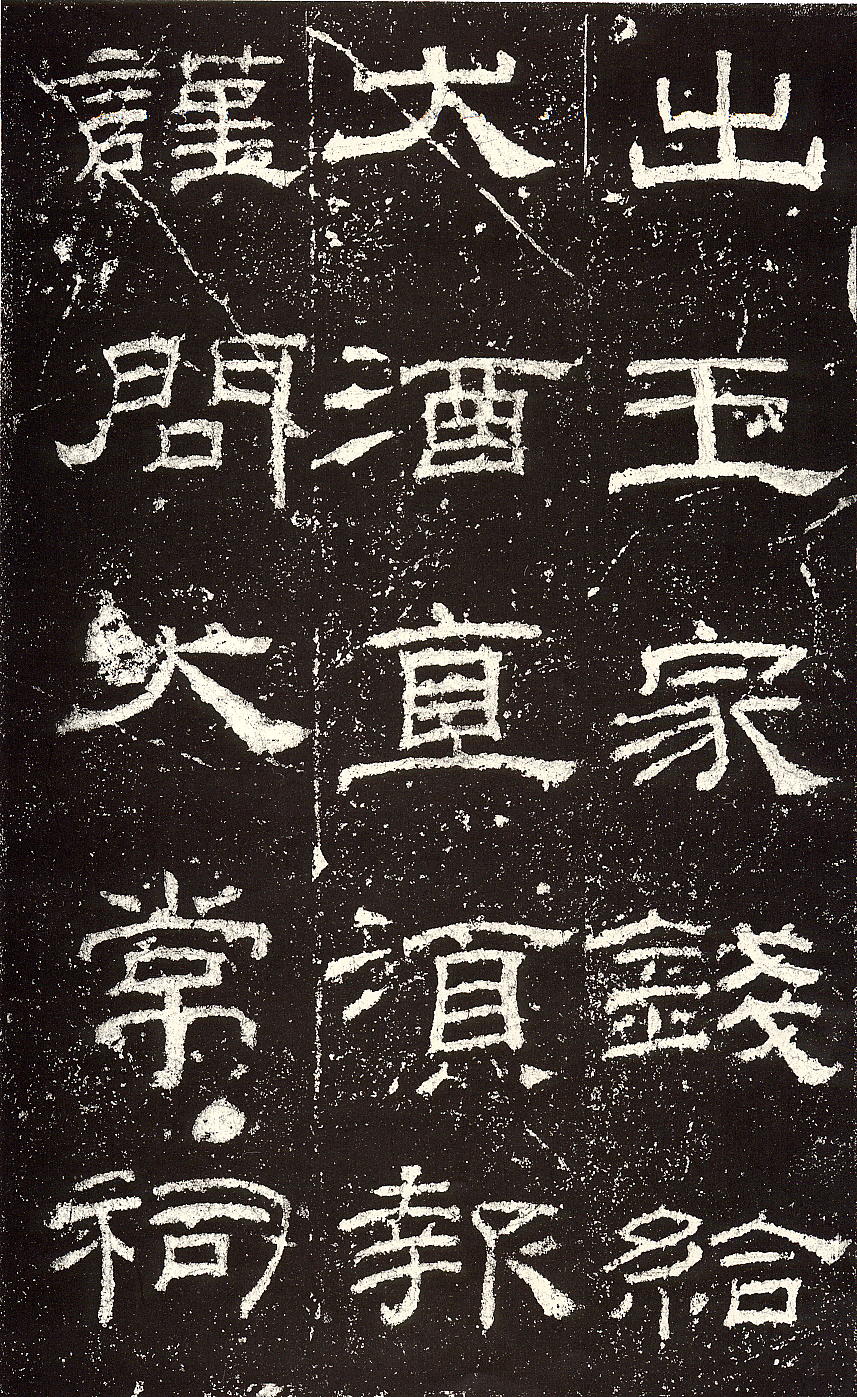 出王家錢給
犬酒直須報
謹問大常祠